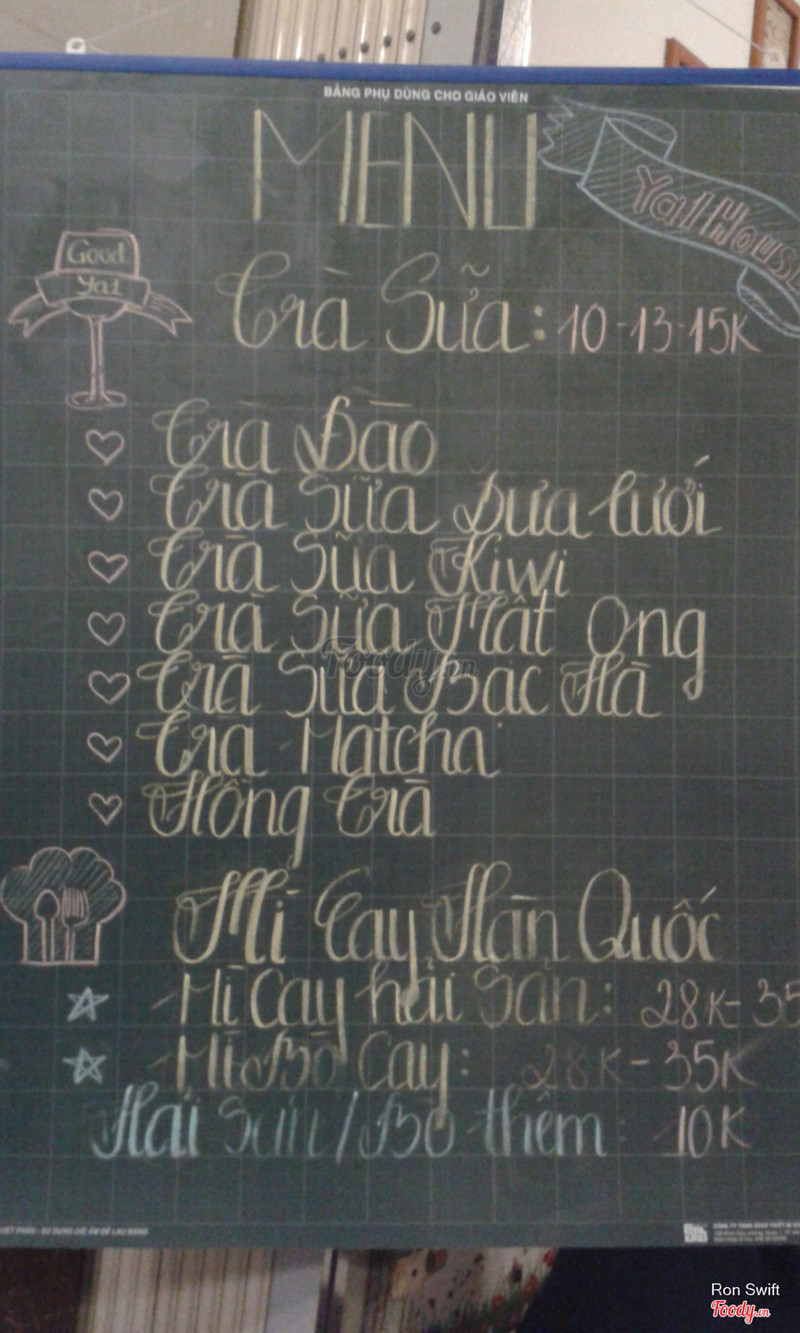 BẢNG PHỤ DÙNG CHO GIÁO VIÊN
MENU
Ya1House
Good
Ya1
Trà Sữa: 10-13-15K
Trà Đào
Trà Sữa Dưa lưới
Trà Sữa Kiwi
Trà Sữa Mật Ong
Trà Sữa Bạc Hà
Trà Matcha
Hồng Trà
Mì Cay Hàn Quốc
-Mì Cay hải Sản: 28K-35
-Mì Bò Cay: 28K-35K
Hải Sản/Bò thêm: 10K
Foody.vn
Ron Swift
Foody.vn